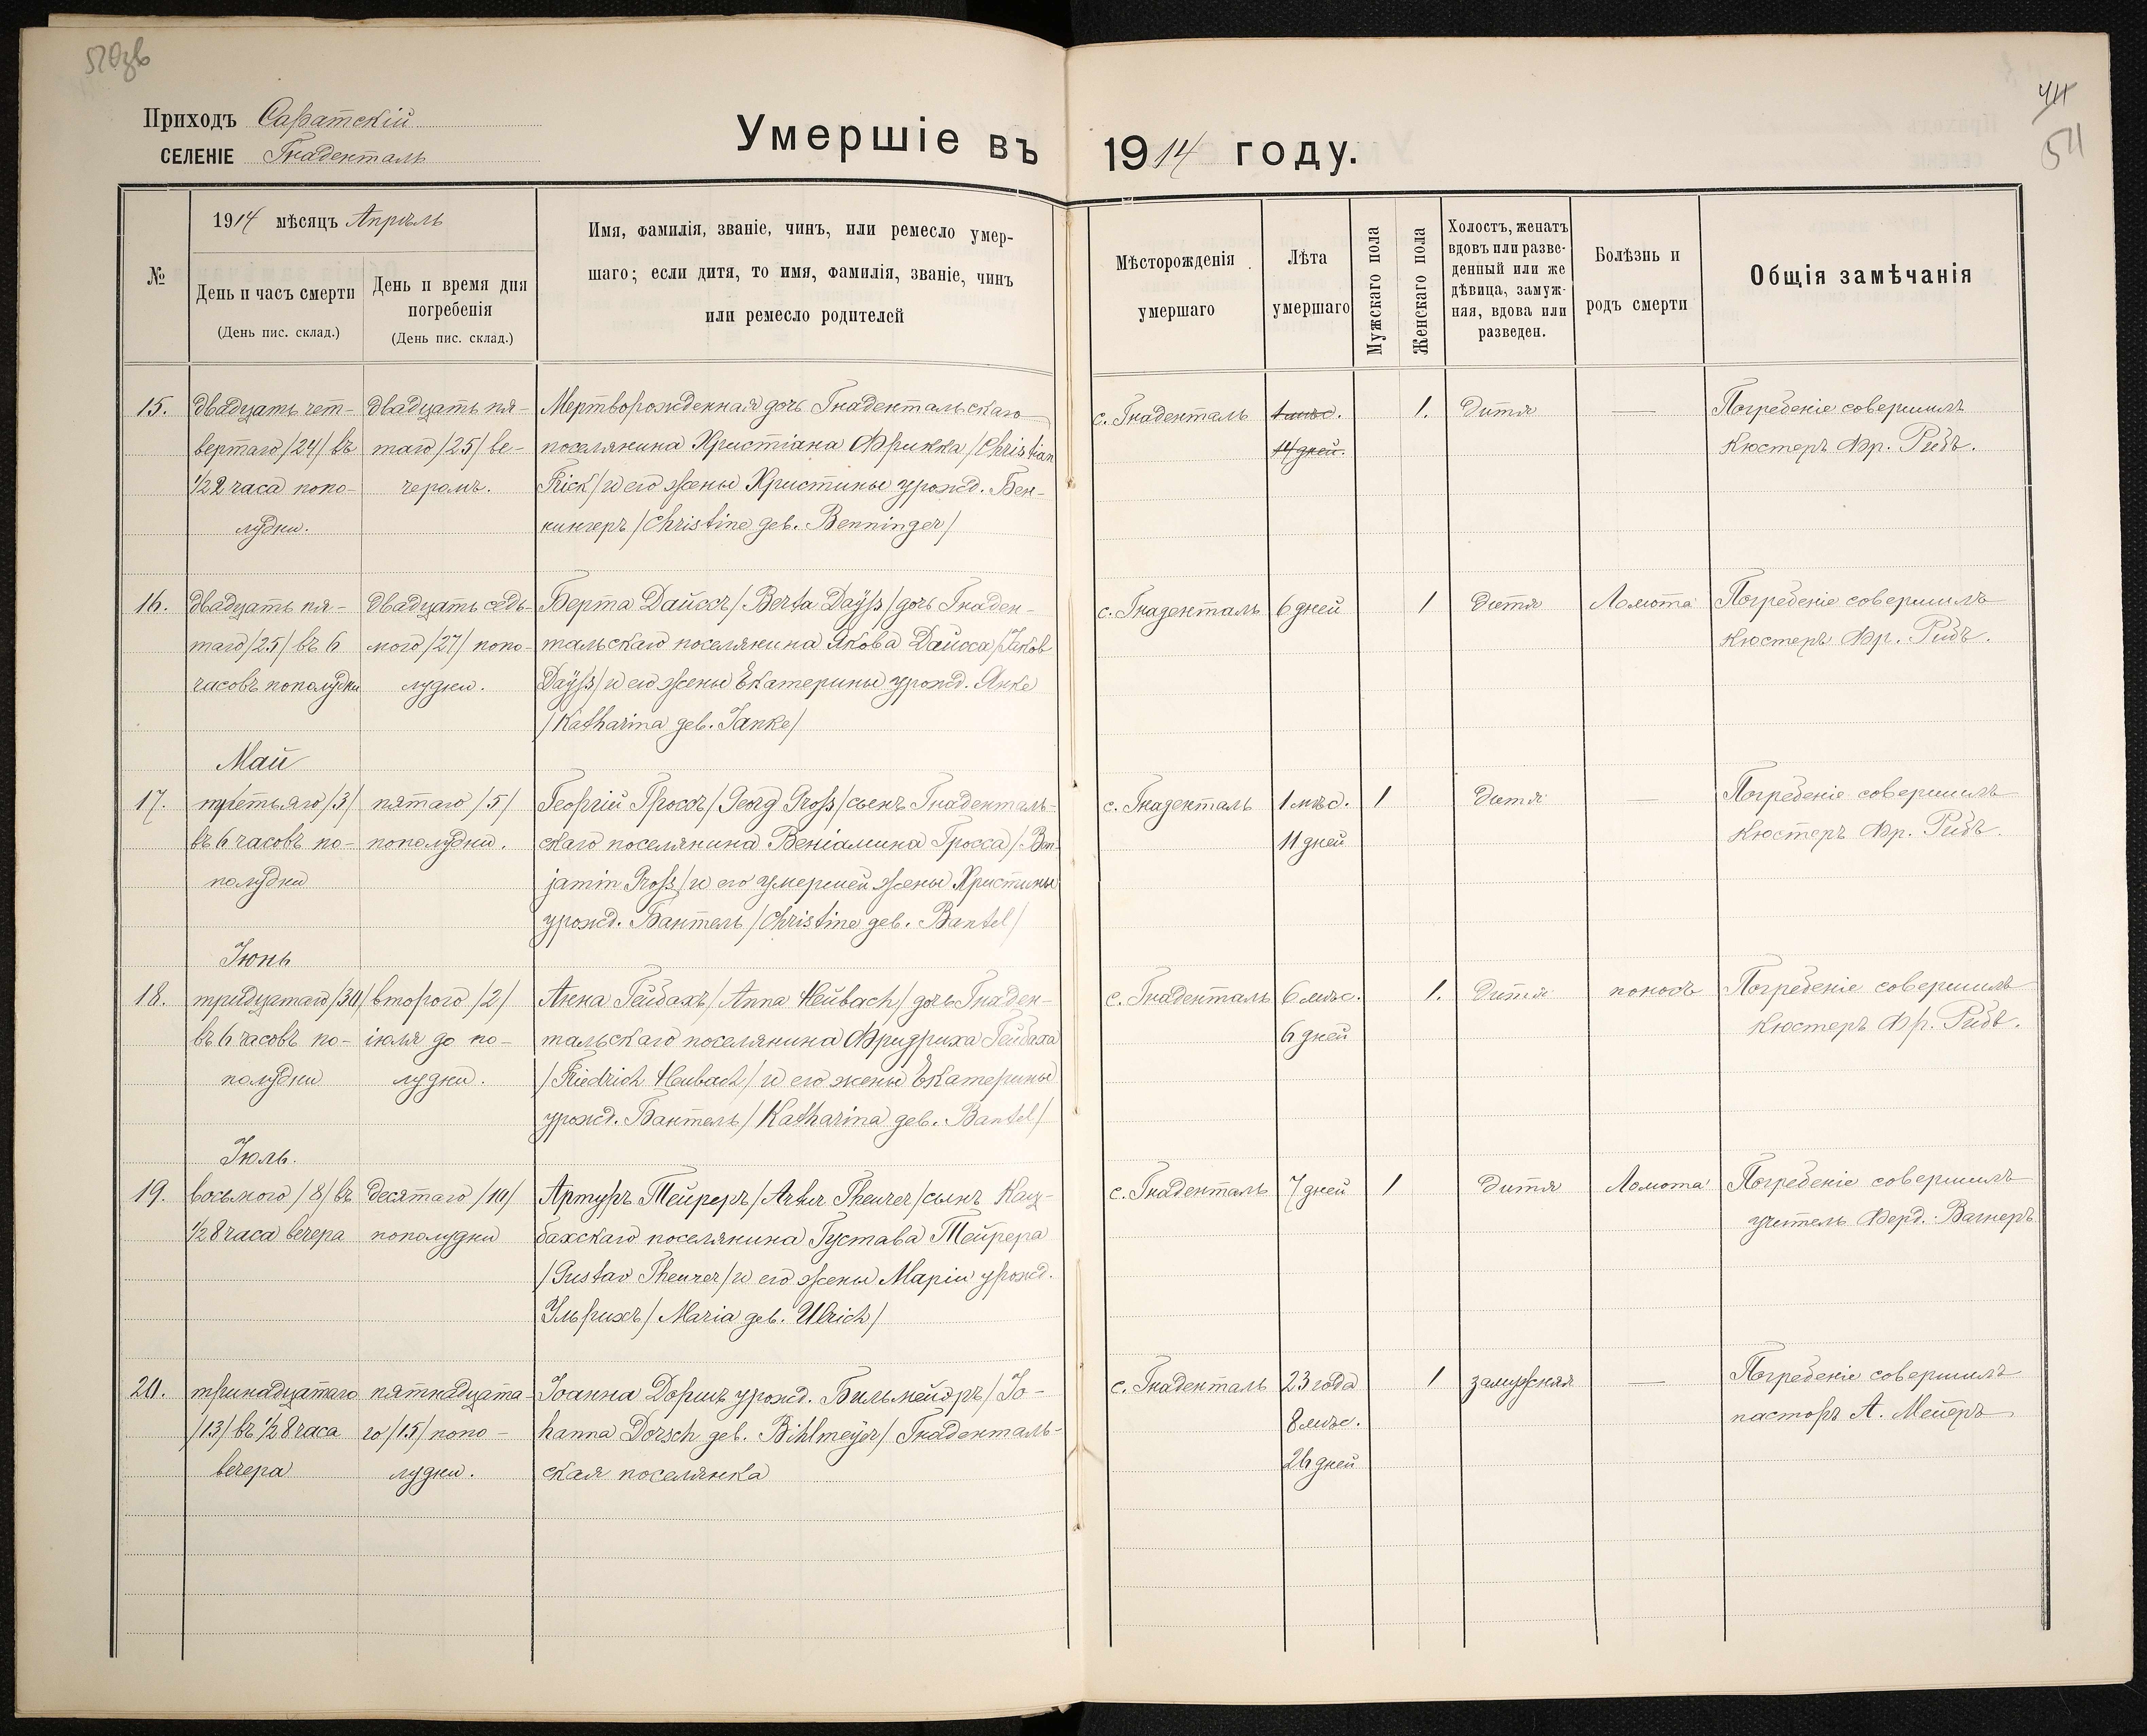 Приходъ Саратскій
СЕЛЕНІЕ Гнаденталь
Умершіе въ 1914 году.
511
№
1914 мѣсяцъ Апрѣль
День и часъ смерти
(День пис. склад.)
День и время дня
погребенія
(День пис. склад.)
Имя, фамилія, званіе, чинъ, или ремесло умер-
шаго; если дитя, то имя, фамилія, званіе, чинъ
или ремесло родителей
Мѣсторожденія
умершаго
Лѣта
умершаго
Мужскаго пола
Женскаго пола
Холостъ, женатъ
вдовъ или разве-
денный или же
дѣвица, замуж-
няя, вдова или
разведен.
Болѣзнь и
родъ смерти
Общія замѣчанія
15.
двадцать чет-
вертаго /24/ въ
½2 часа попо-
лудни.
двадцать пя-
таго /25/ ве-
черомъ.
Мертворожденная дочь Гнадентальскаго
поселянина Христіана Фрикка /Christian
Frick/ и его жены Христины урожд. Бен-
нингеръ /Christine geb. Benninger/
с. Гнаденталь
1 мѣс.
11 дней.
1.
Дитя
—
Погребеніе совершилъ
Кюстеръ Фр. Рибъ.
16.
двадцать пя-
таго /25/ въ 6
часовъ пополудни
двадцать седь-
мого /27/ попо-
лудни.
Берта Дайссъ /Berta Dayß/ дочь Гнаден-
тальскаго поселянина Якова Дайсса /Jakob
Dayß/ и его жены Екатерины урожд. Янке
/Katharina geb. Janke/
с. Гнаденталь
6 дней
1
Дитя
Ломота
Погребеніе совершилъ
Кюстеръ Фр. Рибъ.
Май
17.
третьяго /3/
въ 6 часовъ по-
полудни
пятаго /5/
пополудни.
Георгій Гроссъ /Georg Gross/ сынъ Гнаденталь-
скаго поселянина Веніамина Гросса /Ben-
jamin Gross/ и его умершей жены Христины
урожд. Бантель /Christine geb. Bantel/
с. Гнаденталь
1 мѣс.
11 дней
1
Дитя
—
Погребеніе совершилъ
Кюстеръ Фр. Рибъ.
Іюнь
18.
тридцатаго /30/
въ 6 часовъ по-
полудни
второго /2/
іюля до по-
лудни.
Анна Гейбахъ /Anna Heubach/ дочь Гнаден-
тальскаго поселянина Фридриха Гейбаха
/Friedrich Heubach/ и его жены Екатерины
урожд. Бантель /Katharina geb. Bantel/
с. Гнаденталь
6 мѣс.
6 дней
1.
Дитя
поносъ
Погребеніе совершилъ
Кюстеръ Фр. Рибъ.
Іюль.
19.
восьмого /8/ въ
½8 часа вечера
десятаго /10/
пополудни
Артуръ Тейреръ /Artur Theurer/ сынъ Кац-
бахскаго поселянина Густава Тейрера
/Gustav Theurer/ и его жены Маріи урожд.
Ульрихъ /Maria geb. Ulrich/
с. Гнаденталь
7 дней
1
Дитя
Ломота
Погребеніе совершилъ
учитель Ферд. Вагнеръ
20.
тринадцатаго
/13/ въ ½8 часа
вечера
пятнадцата-
го /15/ попо-
лудни.
Іоанна Доршъ урожд. Бильмейеръ /Jo-
hanna Dorsch geb. Bihlmeyer/ Гнаденталь-
ская поселянка
с. Гнаденталь
23 года
8 мѣс.
26 дней
1
замужняя
—
Погребеніе совершилъ
пасторъ А. Мейеръ